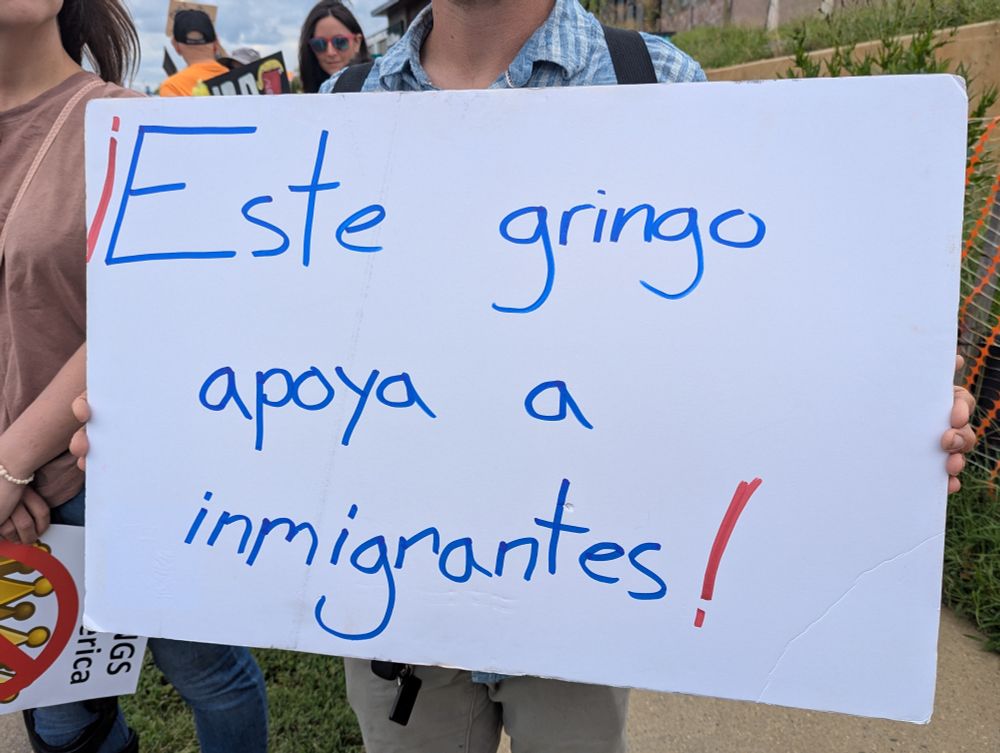 ¡Este gringo
apoya a
inmigrantes!
NGS
erica